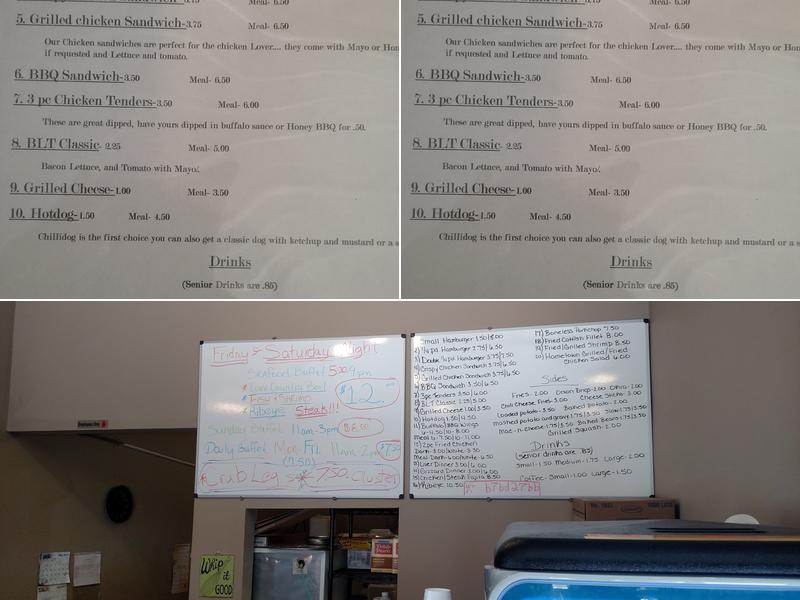 Meal- 6.50
5. Grilled chicken Sandwich-3.75 Meal- 6.50
Our Chicken sandwiches are perfect for the chicken Lover.... they come with Mayo or Hon
if requested and Lettuce and tomato.
6. BBQ Sandwich-3.50 Meal- 6.50
7. 3 pc Chicken Tenders-3.50 Meal- 6.00
These are great dipped, have yours dipped in buffalo sauce or Honey BBQ for .50.
8. BLT Classic- 2.25 Meal- 5.00
Bacon Lettuce, and Tomato with Mayo.
9. Grilled Cheese-1.00 Meal- 3.50
10. Hotdog-1.50 Meal- 4.50
Chillidog is the first choice you can also get a classic dog with ketchup and mustard or a s
Drinks
(Senior Drinks are .85)
Meal- 6.50
5. Grilled chicken Sandwich-3.75 Meal- 6.50
Our Chicken sandwiches are perfect for the chicken Lover.... they come with Mayo or Hon
if requested and Lettuce and tomato.
6. BBQ Sandwich-3.50 Meal- 6.50
7. 3 pc Chicken Tenders-3.50 Meal- 6.00
These are great dipped, have yours dipped in buffalo sauce or Honey BBQ for .50.
8. BLT Classic- 2.25 Meal- 5.00
Bacon Lettuce, and Tomato with Mayo.
9. Grilled Cheese-1.00 Meal- 3.50
10. Hotdog-1.50 Meal- 4.50
Chillidog is the first choice you can also get a classic dog with ketchup and mustard or a s
Drinks
(Senior Drinks are .85)
Friday & Saturday Night
Seafood Buffet 5:00 9pm
* Low Country Boil
* Fish & Shrimp
* Ribeye Steak!!!
$12.
Sunday Buffet 11am-3pm $8.00
Daily Buffet Mon-Fri 11am-2pm $7.50
(7.50)
*Crab Legs* 7.50. Cluster
Small Hamburger 1.50/5.00
2) 1/4 pd Hamburger 2.75/6.50
3) Double 1/4 pd Hamburger 3.75/7.50
4) Crispy Chicken Sandwich 3.75/6.50
5) Grilled Chicken Sandwich 3.75/6.50
6) BBQ Sandwich 3.50/6.50
7) 3pc Tenders 3.50/6.00
8) BLT Classic 2.25/5.00
9) Grilled Cheese 1.00/3.50
10) Hotdog 1.50/4.50
11) Buffalo/BBQ Wings
6-4.50/10-8.00
Meal 6-7.50/10-11.00
12) 2pc Fried Chicken
Dark-3.00/White-3.50
Meal Dark-6.00/White-6.50
13) Liver Dinner 3.00/6.00
14) Gizzard Dinner 3.00/6.00
15) Chicken/Steak Fajita 8.50
16) Ribeye 10.50
17) Boneless Porkchop 7.50
18) Fried Catfish Fillet 8.00
19) Fried/Grilled Shrimp 8.50
20) Hometown Grilled/Fried
Chicken Salad 6.00
Sides
Fries-2.00 Onion Rings-2.00 Okra-2.00
Chili Cheese Fries-3.00 Cheese Sticks-3.00
Loaded potato-3.50 Baked potato-2.00
mashed potato and gravy 1.75/3.50 Slaw 1.75/3.50
Mac-n-cheese-1.75/3.50 Baked Beans 1.75/3.50
Grilled Squash-2.00
Drinks
(Senior drinks are .85)
Small-1.50 Medium-1.75 Large-2.00
Coffee- Small-1.00 Large-1.50
b7bd27bb
Whip
it
GOOD